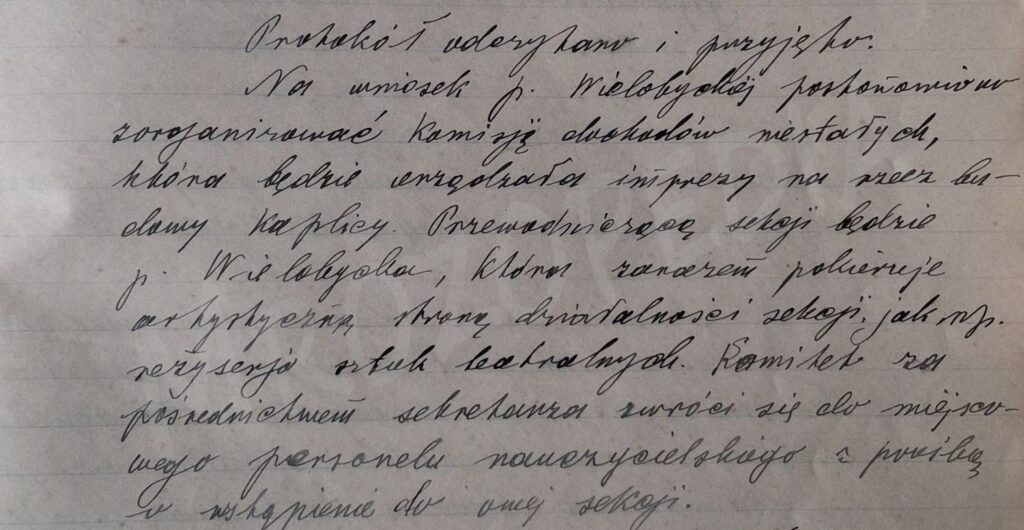 Protokół odczytano i przyjęto.
Na wniosek p. Wielobyckiej postanowiono
zorganizować Komisję dochodów niestałych,
która będzie urządzała imprezy na rzecz bu-
dowy kaplicy. Przewodniczącą sekcji będzie
p. Wielobycka, która zarazem pokieruje
artystyczną stroną działalności sekcji, jak np.
reżyserja sztuk teatralnych. Komitet za
pośrednictwem sekretarza zwróci się do miejsco-
wego personelu nauczycielskiego z prośbą
o wstąpienie do owej sekcji.